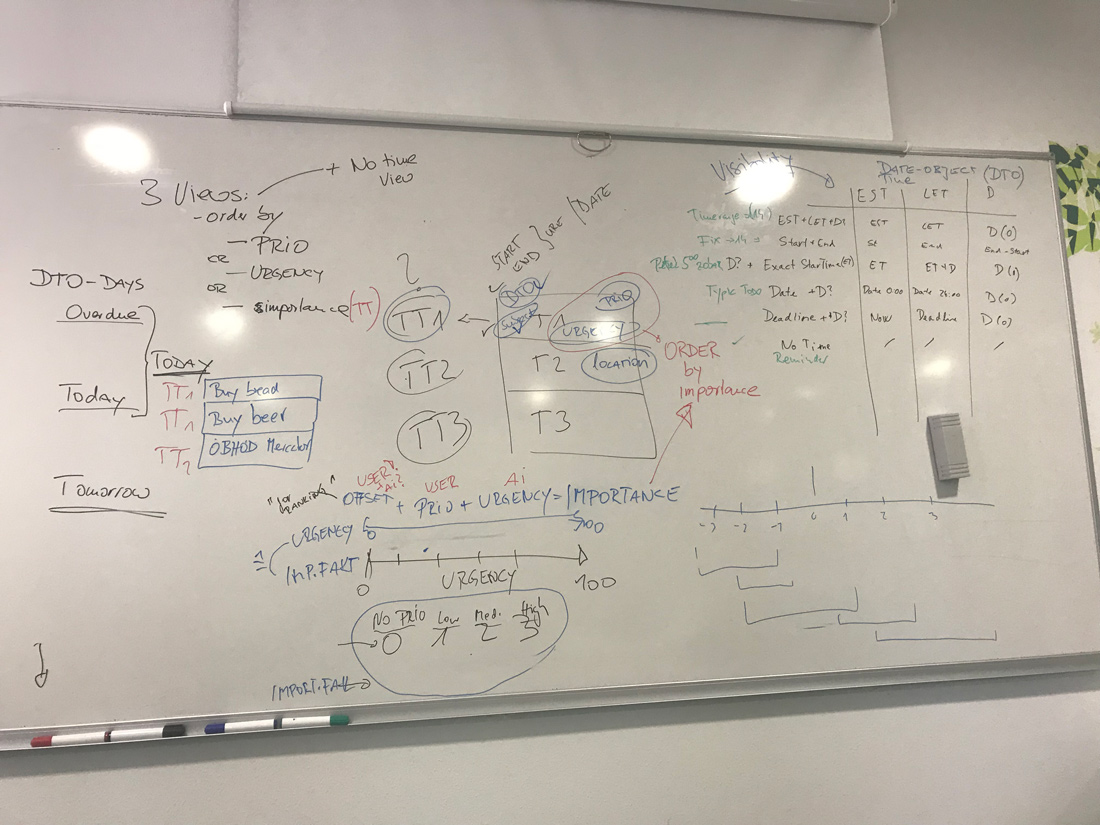 3 Views:
+ No time
View
- order by
- PRIO
OR
- URGENCY
OR
- importance (TT)
DTO-DAYS
Overdue
Today
Tomorrow
TODAY
TT1 Buy bead
TT1 Buy beer
TT2 OBHOD Mercator
?
TT1
TT2
TT3
START
END
/DATE
DTO
Subject
PRIO
URGENCY
T2
LOCATION
T3
ORDER
by
importance
USER
Ai?
USER
Ai
OFFSET + PRIO + URGENCY = IMPORTANCE
URGENCY 0 100
IMP. FAKT
0 URGENCY 100
NO PRIO Low Med. High
0 1 2 3
IMPORT. FAKT
Visibility
DATE-OBJECT (DTO)
Time
EST LET D
EST+LET+D? EST LET D(0)
Start+End St End End-Start
+ Exact StarTime (ET) ET ET+D D(0)
Typk Todo Date +D? Date 0:00 Date 24:00 D(0)
Deadline +D? Now Deadline D(0)
No Time / / /
Reminder
-3 -2 -1 0 1 2 3